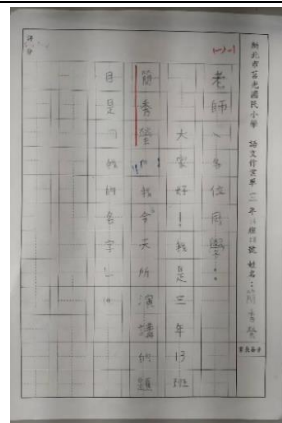 新北市莒光國民小學 語文作業單 三年13班 號 姓名：簡秀
老師、各位同學：
大家好！我是三年13班
簡秀 我今天所演講的題
目是「我的名字」。
評分